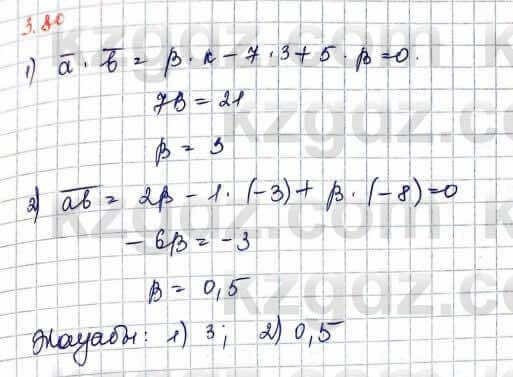 3.80
1) a̅ · b̅ = β · к − 7 · 3 + 5 · β = 0.
7β = 21
β = 3
2) a̅b̅ = 2β − 1 · (−3) + β · (−8) = 0
− 6β = −3
β = 0,5
Жауабы: 1) 3; 2) 0,5
kzgdz.com